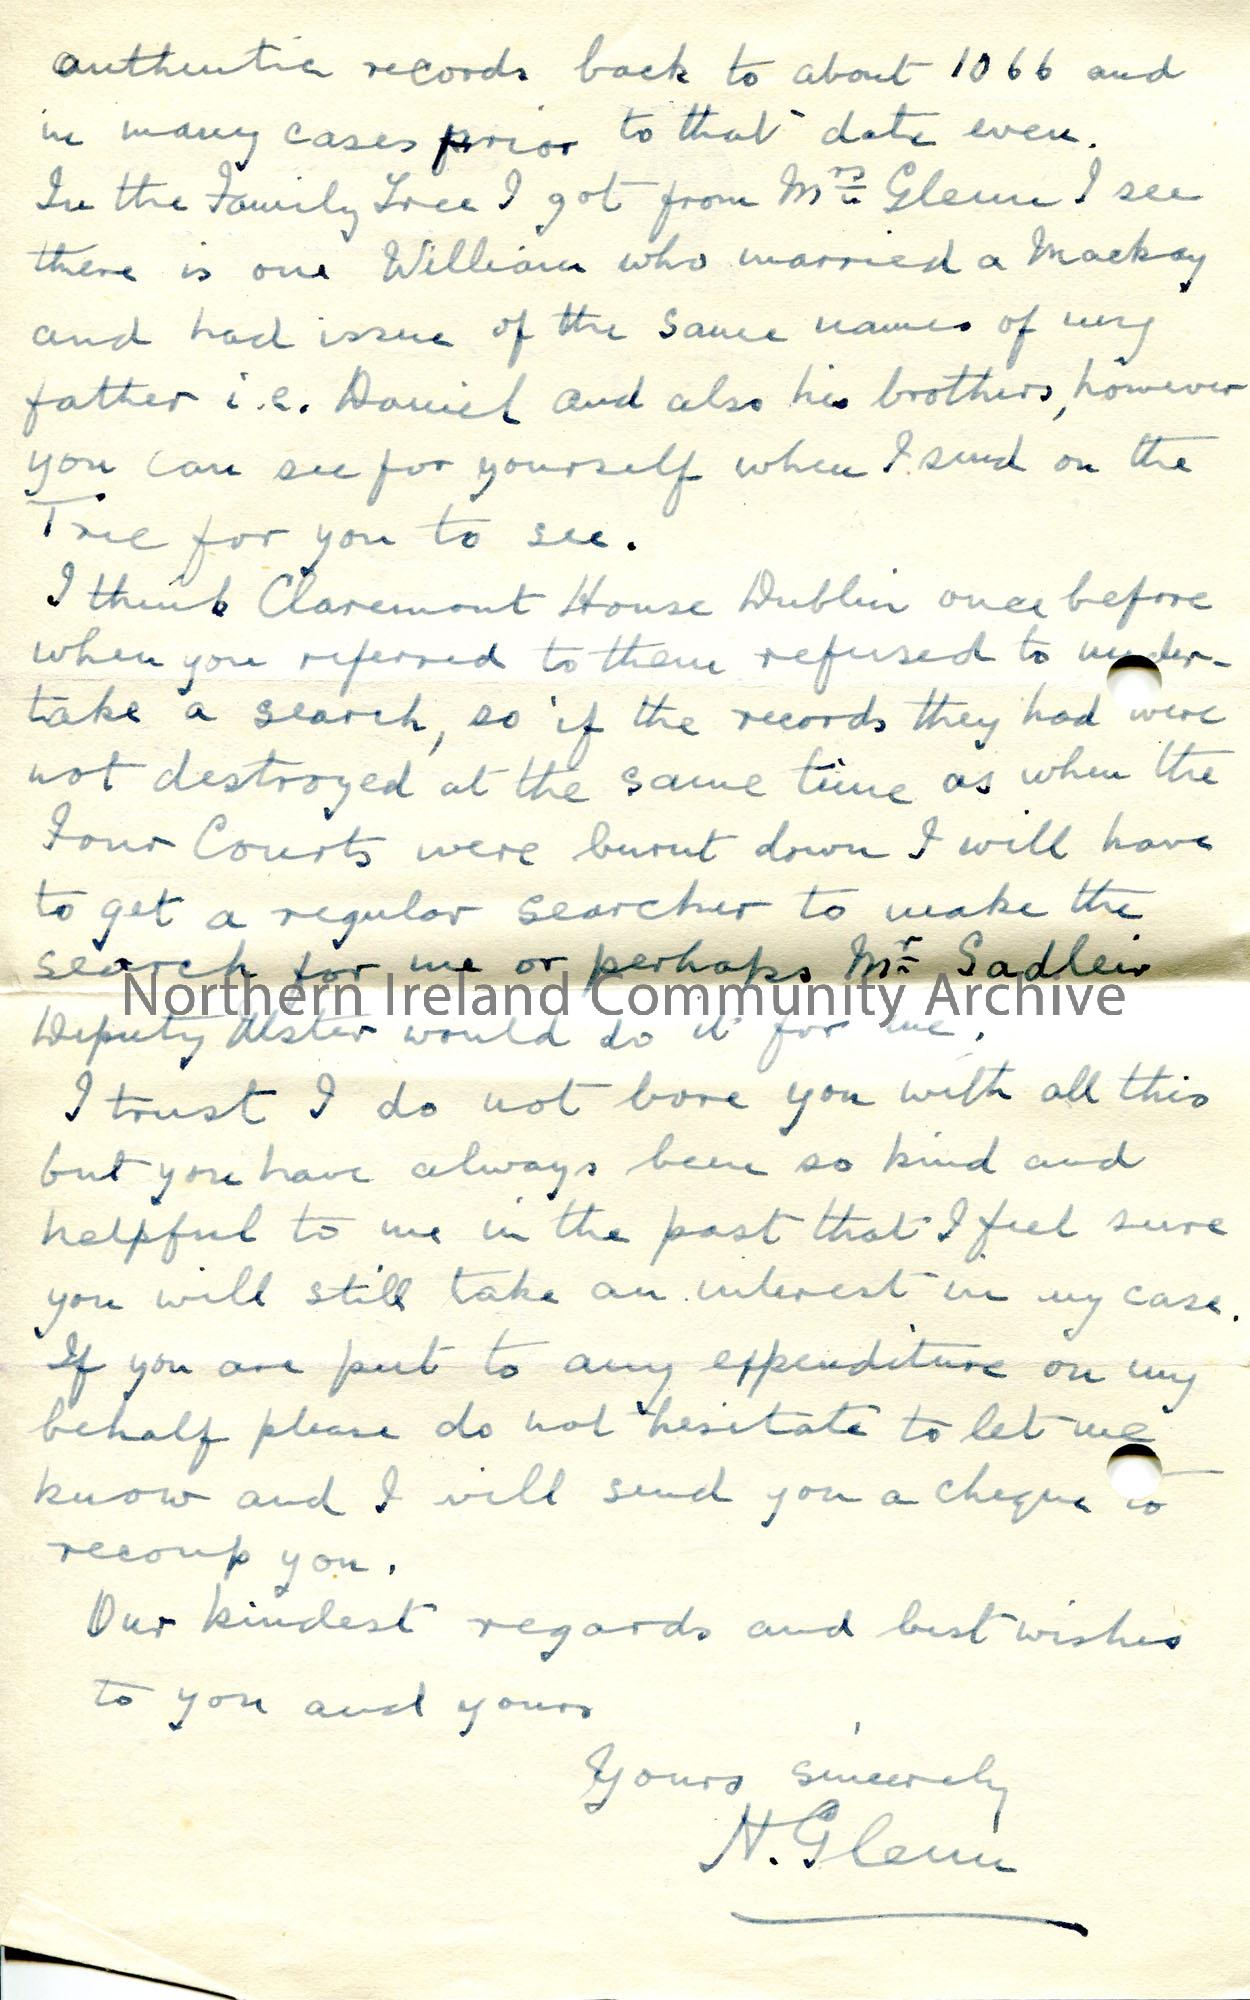 authentic records back to about 1066 and
in many cases prior to that date even.
In the Family Tree I got from Mrs Glenn I see
there is one William who married a Mackay
and had issue of the same names of my
father i.e. Daniel and also his brothers, however
you can see for yourself when I send on the
Tree for you to see.
I think Claremont House Dublin once before
when you referred to them refused to under-
take a search, so if the records they had were
not destroyed at the same time as when the
Four Courts were burnt down I will have
to get a regular searcher to make the
search for me or perhaps Mr Sadleir
Northern Ireland Community Archive
Deputy Ulster would do it for me.
I trust I do not bore you with all this
but you have always been so kind and
helpful to me in the past that I feel sure
you will still take an interest in my case.
If you are put to any expenditure on my
behalf please do not hesitate to let me
know and I will send you a cheque to
recoup you.
Our kindest regards and best wishes
to you and yours
Yours sincerely
H. Glenn